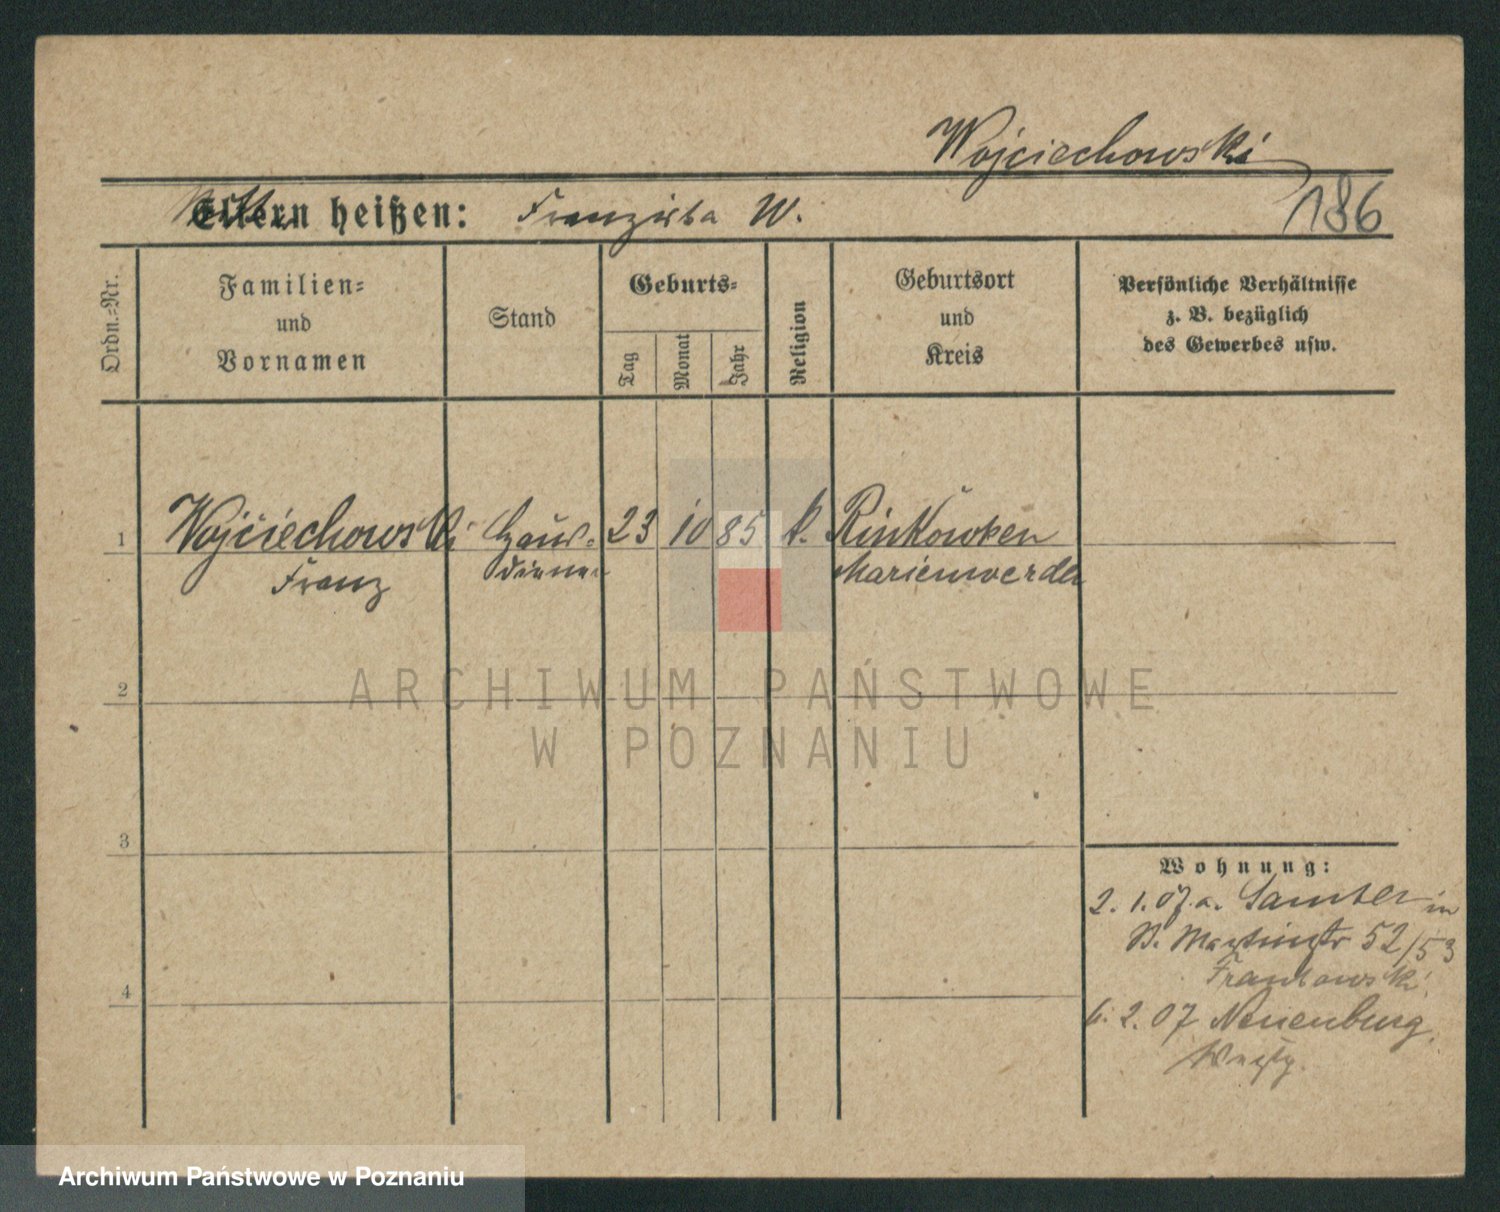 Wojciechowski
186
Eltern heißen: Franziska W.
Ordn.=Nr.
Familien=
und
Vornamen
Stand
Geburts=
Tag
Monat
Jahr
Religion
Geburtsort
und
Kreis
Persönliche Verhältnisse
z. B. bezüglich
des Gewerbes usw.
1 Wojciechowski Haus= 23 10 85 k. Rinkowken
Franz diener Marienwerder
2
3
4
Wohnung:
2. 1. 07. a. Samter in
St. Martinstr 52/53
Frankowski
6. 2. 07 Neuenburg,
Westpr.
ARCHIWUM PAŃSTWOWE
W POZNANIU
Archiwum Państwowe w Poznaniu